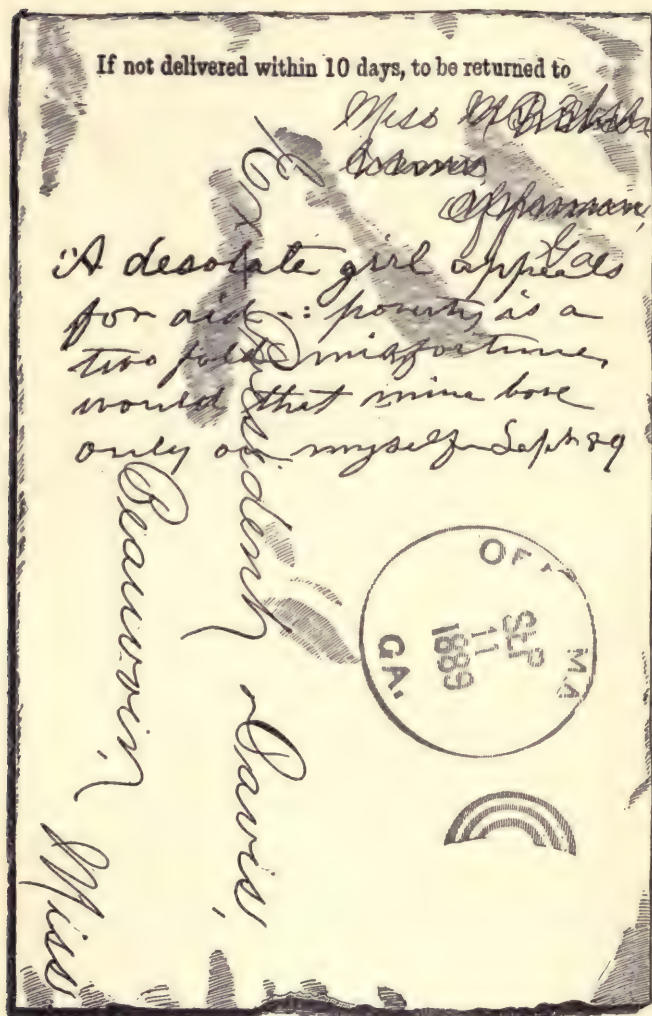 If not delivered within 10 days, to be returned to
Miss
Offerman,
Ga
"A desolate girl appeals
for aid -: poverty is a
two fold misfortune,
would that mine bore
only on myself - Sept 89
Ex President Davis,
Beauvoir,
Miss
OF MA
SEP
11
1889
GA.